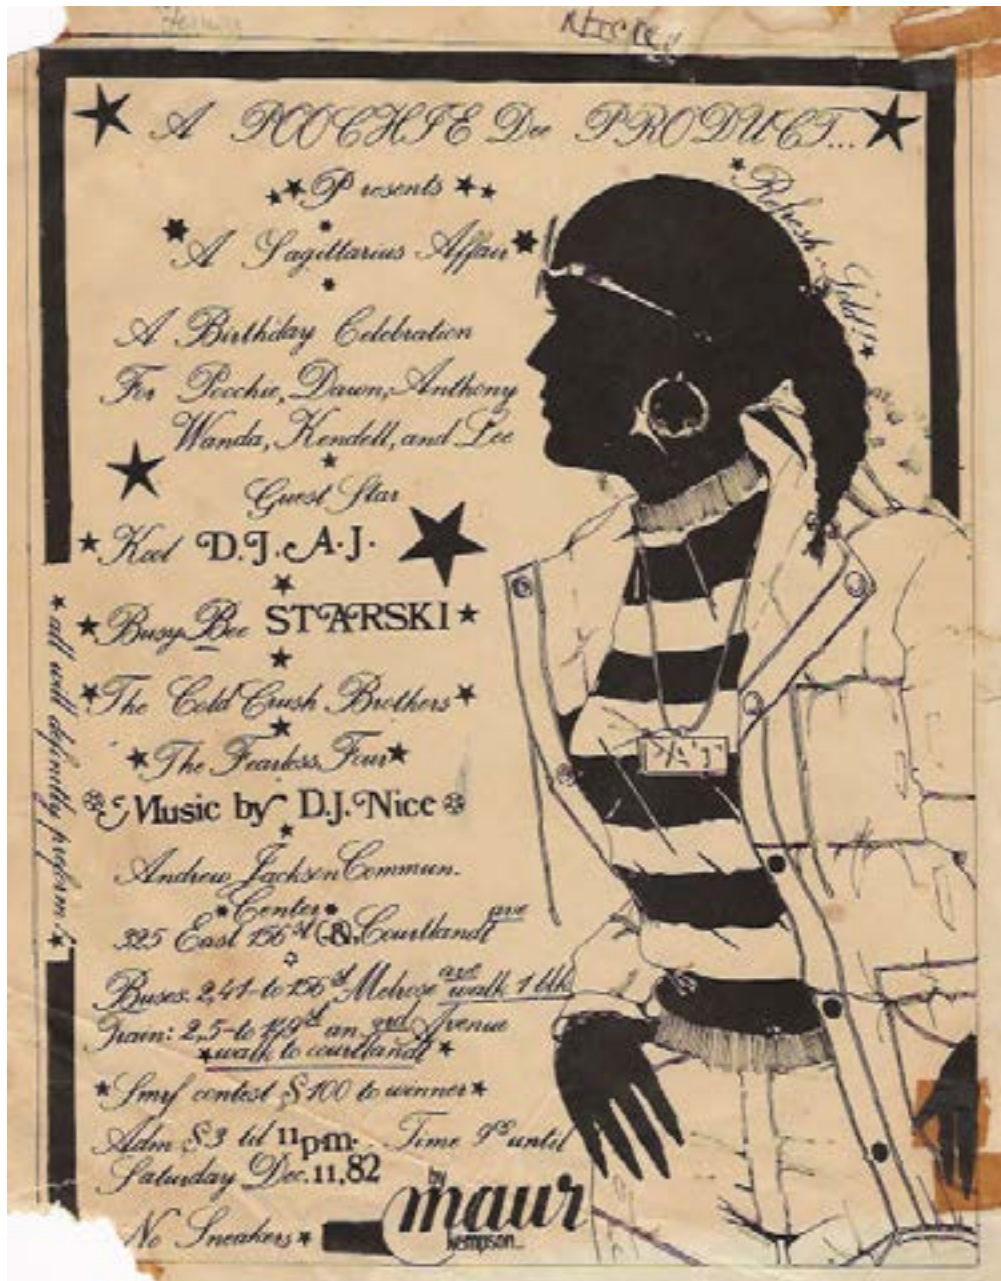 A POOCHIE Dee PRODUCT...
Presents
A Sagittarius Affair
Refresh. Gold!!
A Birthday Celebration
For Poochie, Dawn, Anthony
Wanda, Kendell, and Lee
Guest Star
Kool D.J. A.J.
Busy Bee STARSKI
The Cold Crush Brothers
The Fearless Four
Music by D.J. Nice
all will definitly preform!
Andrew Jackson Commun.
Center
325 East 156st & Courtlandt ave
Buses. 2,41-to 156st Melrose ave walk 1 blk
Train: 2,5-to 149st an 3rd Avenue
walk to courtlandt
Smrf contest $100 to winner
Adm $3 til 11p.m. Time 9 until
Saturday Dec. 11, 82
No Sneakers
by
maur
kempson...